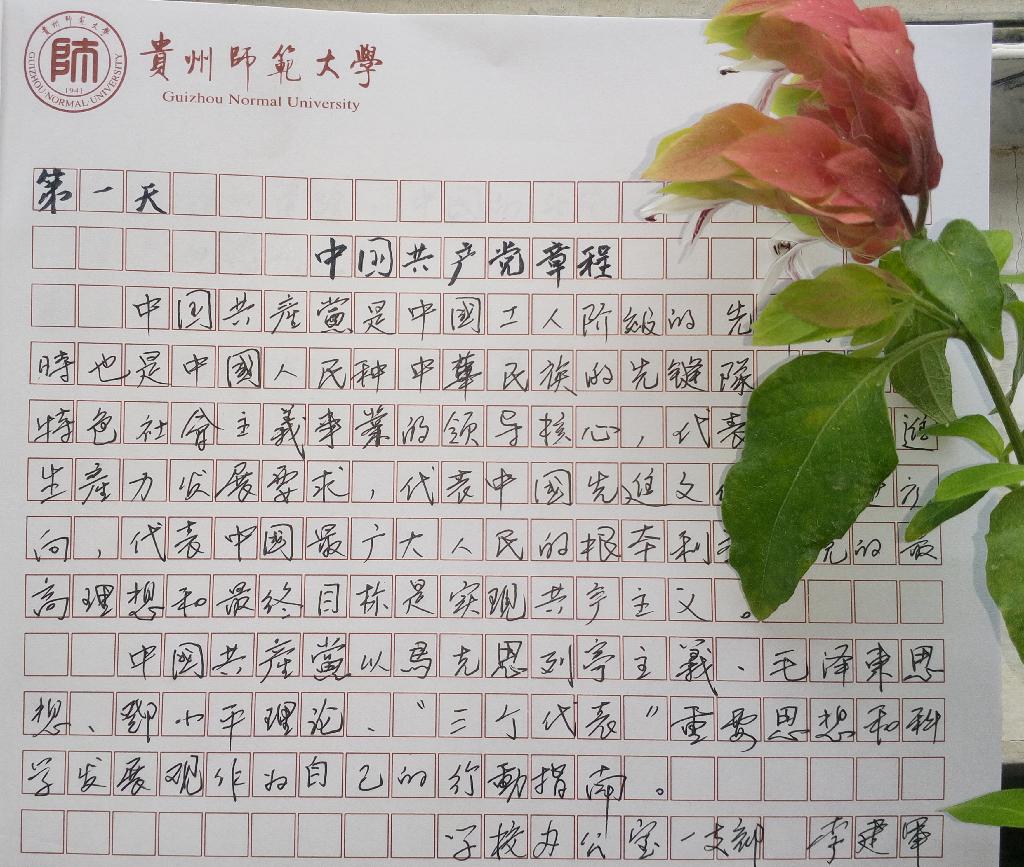 師
貴州師範大學
GUIZHOU NORMAL UNIVERSITY
1941
貴州師範大學
Guizhou Normal University
第一天
中国共产党章程
中国共産黨是中國工人阶级的先
時也是中國人民和中華民族的先鋒隊
特色社會主義事業的领导核心，代表進
生産力发展要求，代表中國先進文方
向，代表中國最广大人民的根本利的最
高理想和最终目标是实现共产主义。
中國共産黨以馬克思列寧主義、毛泽東思
想、鄧小平理论、“三个代表”重要思想和科
学发展观作为自己的行動指南。
学校办公室一支部 李建軍